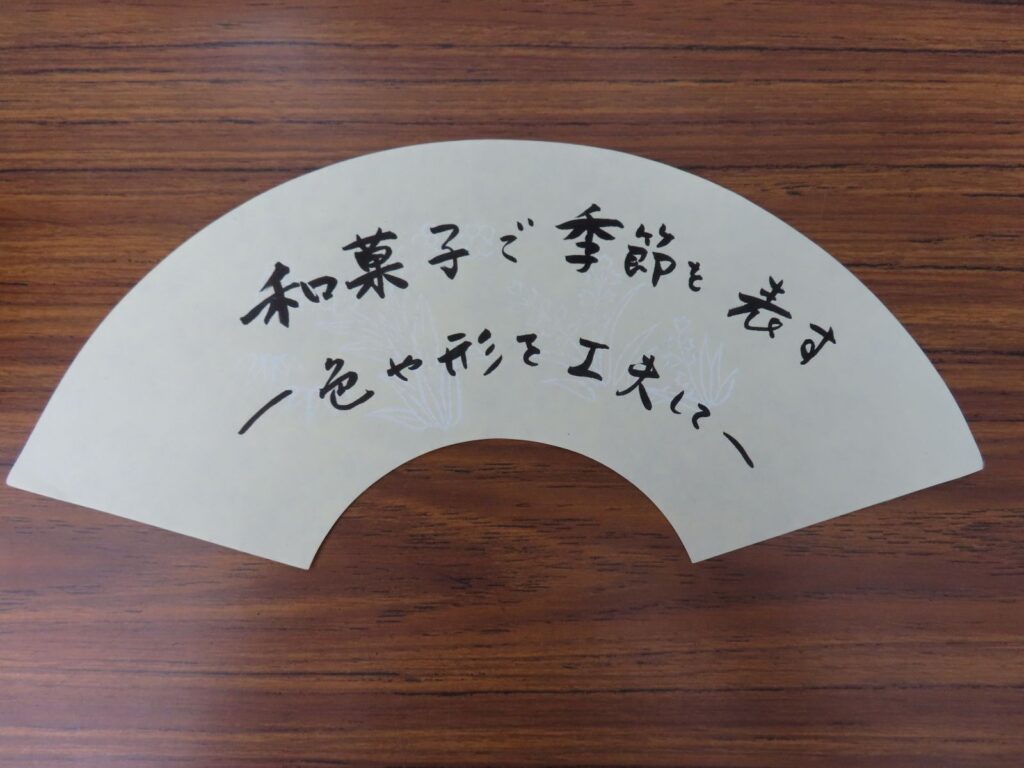 和菓子で季節を表す
ー色や形を工夫してー